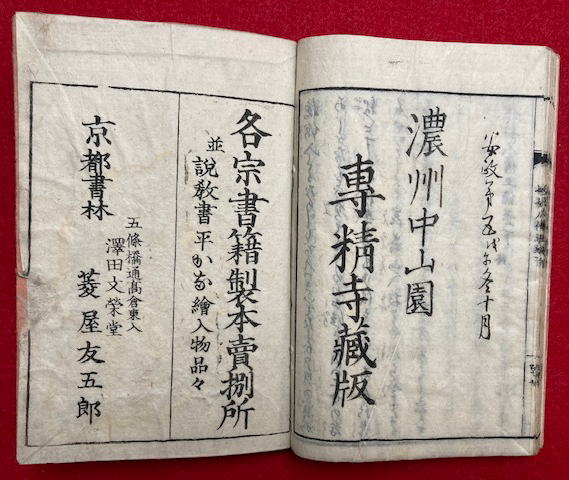 安政第五戊午冬十月
濃州中山園
專精寺藏版
各宗書籍製本賣捌所
並
說敎書平かな繪入物品々
五條橋通高倉東入
澤田文榮堂
京都書林
菱屋友五郎